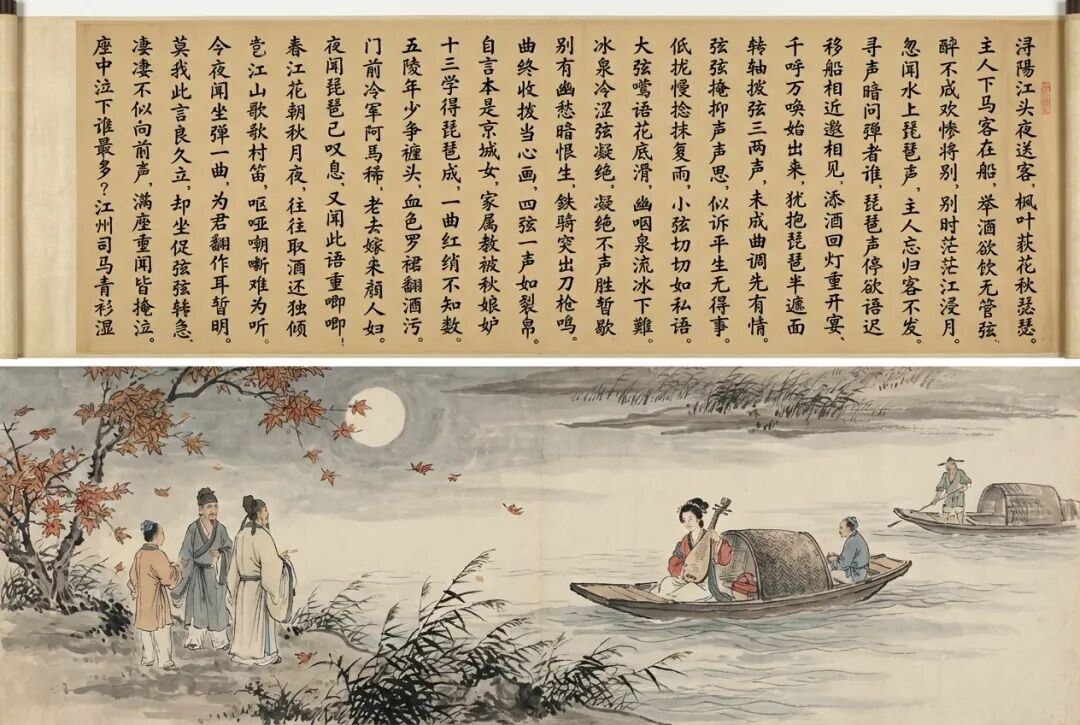 浔陽江头夜送客，枫叶荻花秋瑟瑟。
主人下马客在船，举酒欲饮无管弦
醉不成欢惨将别，别时茫茫江浸月。
忽闻水上琵琶声，主人忘归客不发。
寻声暗问弹者谁，琵琶声停欲语迟
移船相近邀相见，添酒回灯重开宴、
千呼万唤始出来，犹抱琵琶半遮面
转轴拨弦三两声，未成曲调先有情。
弦弦掩抑声声思，似诉平生无得事。
低拢慢捻抹复雨，小弦切切如私语。
大弦鶯语花底滑，幽咽泉流冰下難。
冰泉冷涩弦凝绝，凝绝不声胜暂歇
别有幽愁暗恨生，鉄骑突出刀枪鸣。
曲终收拨当心画，四弦一声如裂帛。
自言本是京城女，家属教被秋娘妒
十三学得琵琶成，一曲红绡不知数。
五陵年少争缠头，血色罗裙翻酒污。
门前冷军阿馬稀，老去嫁来顔人妇。
夜闻琵琶已叹息、又闻此语重唧唧！
春江花朝秋月夜，往往取酒还独倾
岂江山歌歌村笛，呕哑嘲哳难为听。
今夜闻坐弹一曲，为君翻作耳暂明。
莫我此言良久立，却坐促弦弦转急、
凄凄不似向前声，满座重闻皆掩泣。
座中泣下谁最多？江州司马青衫湿